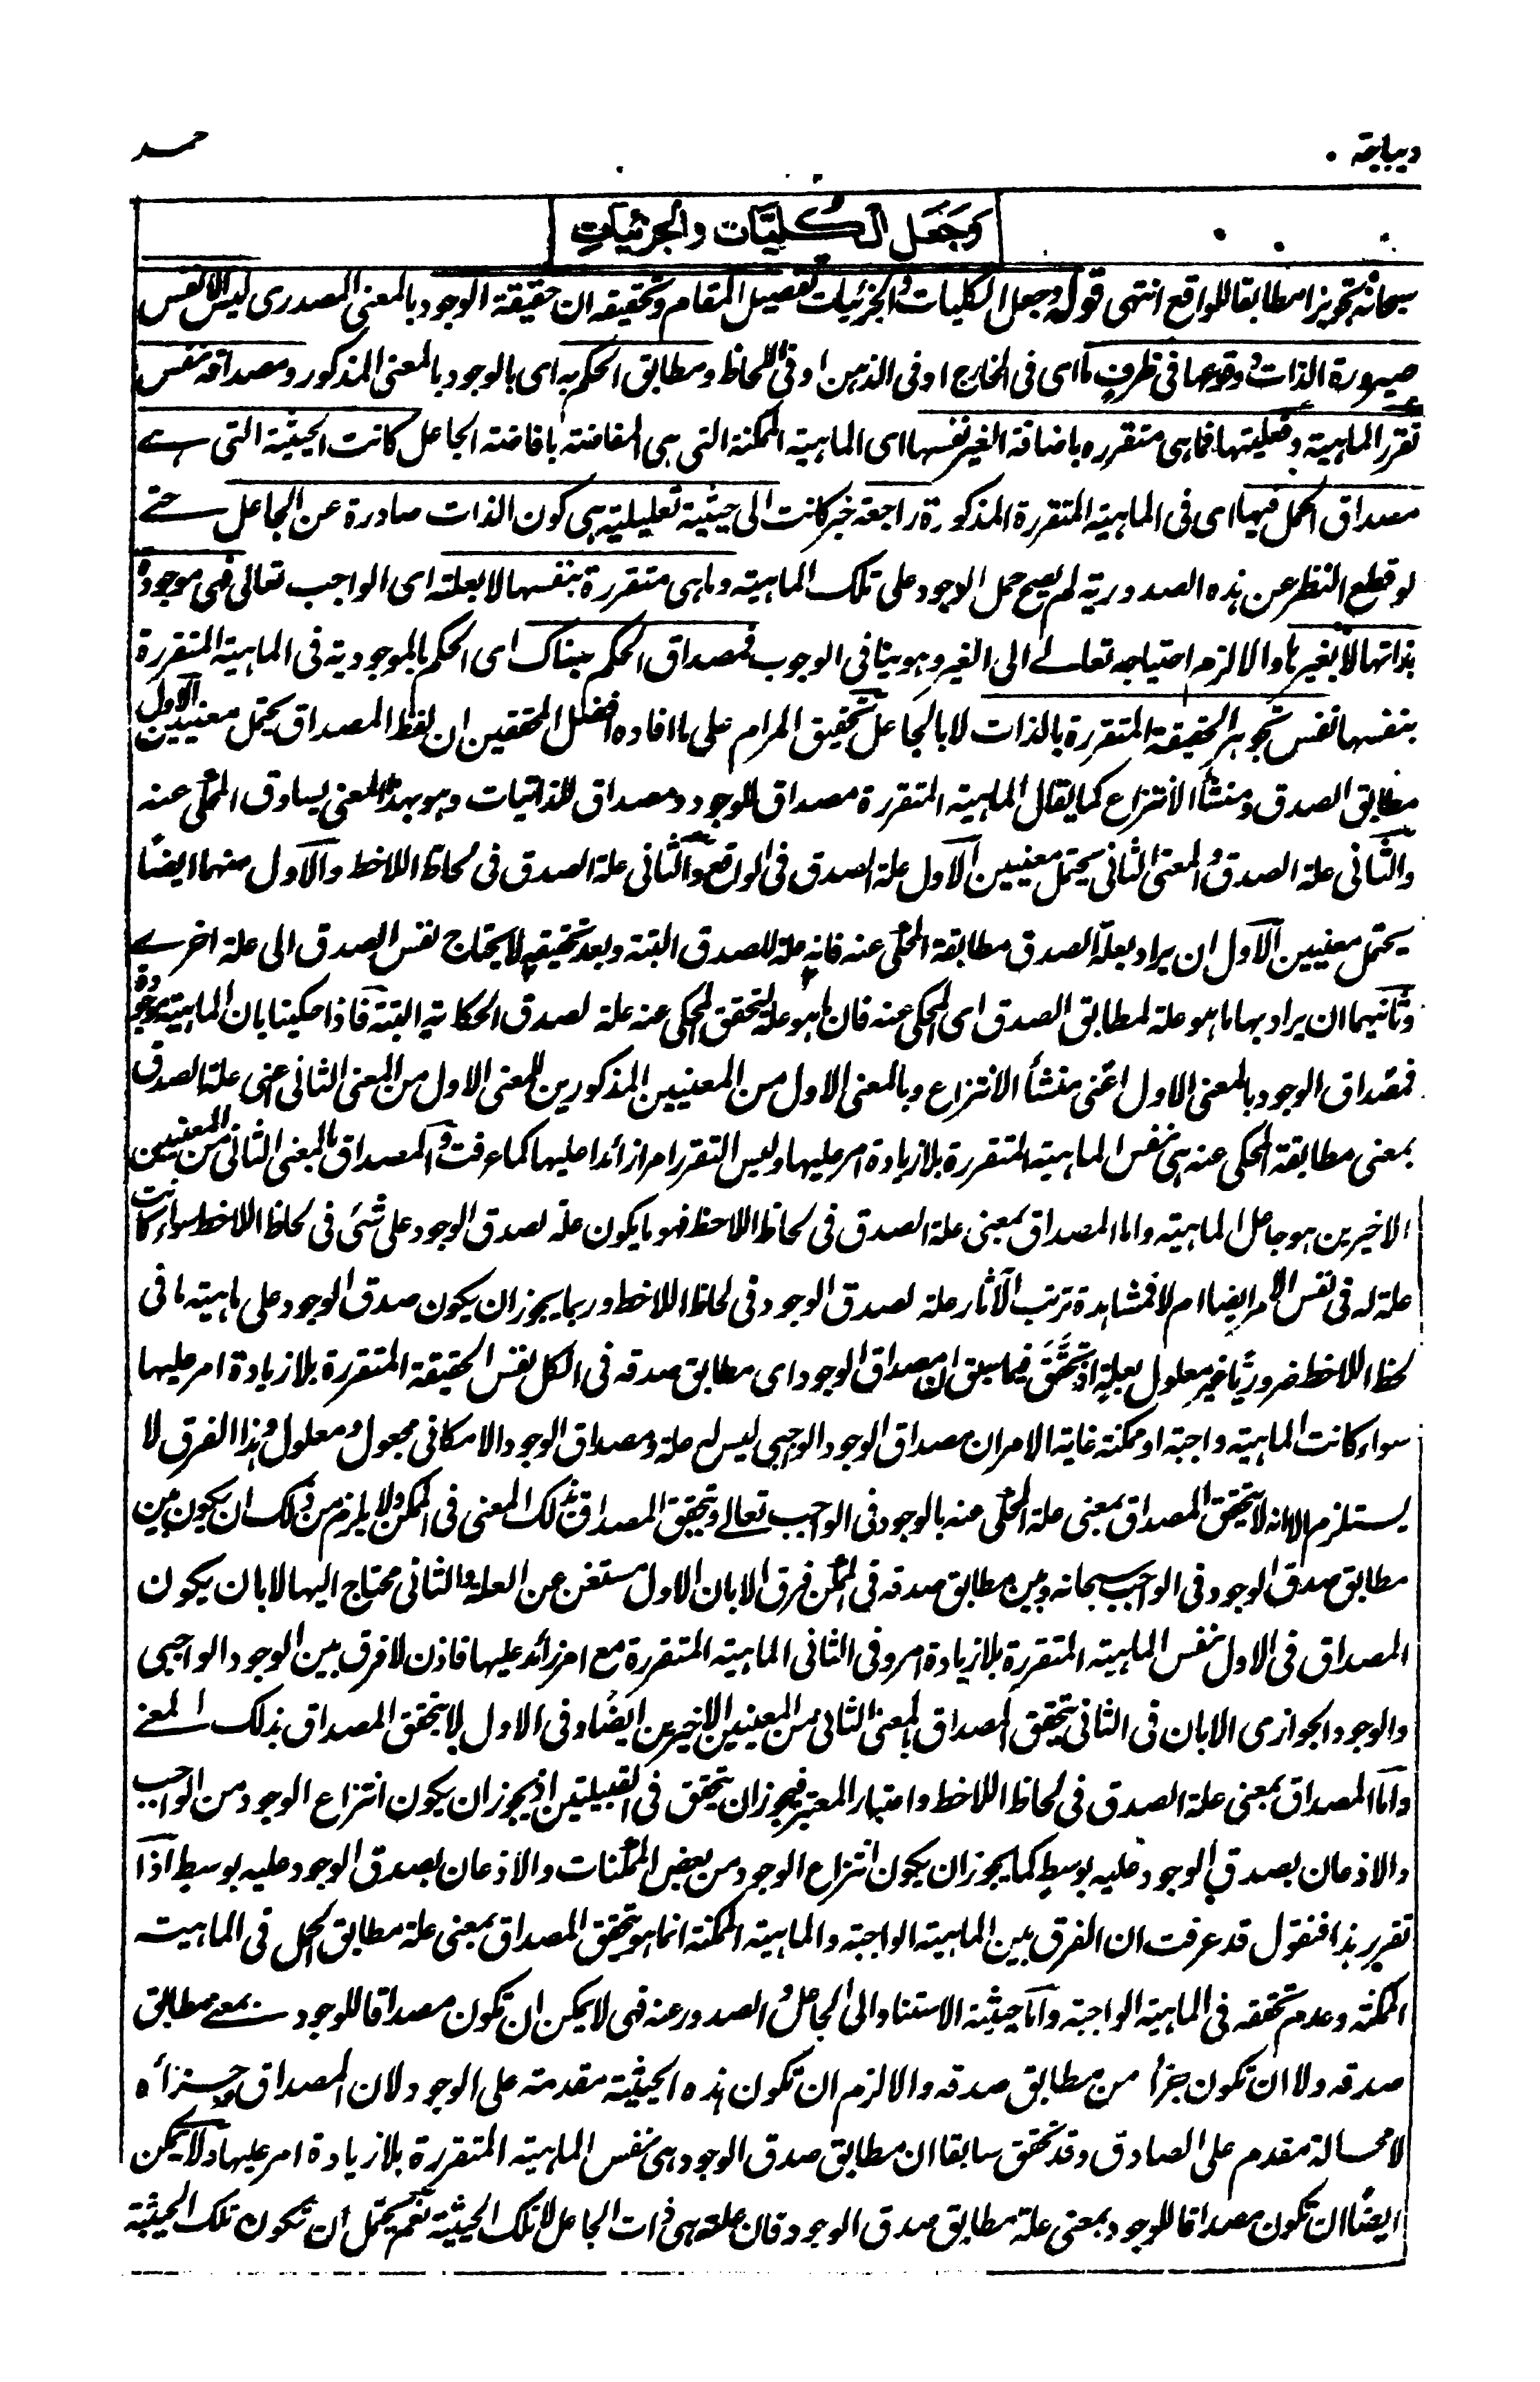 ديباجة
حمد
وَجَعَلَ الْكُلِّيَّات والجزئيات
سبحانه تجويزا مطابقا للواقع انتهى قوله وجعل الكليات والجزئيات تفصيل المقام وتحقيقه ان حقيقة الوجود بالمعنى المصدرى ليس الا نفس
صيرورة الذات ووقوعها فى ظرف ما اى فى الخارج او فى الذهن او فى اللحاظ ومطابق الحكم به اى بالوجود بالمعنى المذكور ومصداقه نفس
تقرر الماهية وفعليتها فما هى متقرره باضافة الغير نفسها اى الماهية الممكنة التى هى المفاضة بافاضة الجاعل كانت الحيثية التى هى
مصداق الحمل فيها اى فى الماهية المتقررة المذكورة راجعة خبر كانت الى حيثية تعليلية هى كون الذات صادرة عن الجاعل حتى
لو قطع النظر عن هذه الصدورية لم يصح حمل الوجود على تلك الماهية وما هى متقررة بنفسها لا بعلته اى الواجب تعالى فهى موجودة
بذاتها لا بغيرها والا لزم احتياجه تعالى الى الغير وهو ينافى الوجوب فمصداق الحكم هناك اى الحكم بالموجودية فى الماهية المتقررة
بنفسها نفس تجوهر الحقيقة المتقررة بالذات لا بالجاعل تحقيق المرام على ما افاده افضل المحققين ان لفظ المصداق يحتمل معنيين الاول
مطابق الصدق ومنشأ الانتزاع كما يقال الماهية المتقررة مصداق للوجود ومصداق للذاتيات وهو بهذا المعنى يساوق المحكى عنه
والثانى علة الصدق والمعنى الثانى يحتمل معنيين الاول علة الصدق فى الواقع والثانى علة الصدق فى لحاظ اللاحظ والاول منهما ايضًا
يحتمل معنيين الاول ان يراد بعلة الصدق مطابقة المحكى عنه فانه علة للصدق البتة وبعد تحقيقه لا يحتاج نفس الصدق الى علة اخرى
وثانيهما ان يراد بها ما هو علة لمطابق الصدق اى المحكى عنه فان ما هو علة لتحقق المحكى عنه علة لصدق الحكاية البتة فاذا حكينا بان الماهية موجودة
فمصداق الوجود بالمعنى الاول اعنى منشأ الانتزاع وبالمعنى الاول من المعنيين المذكورين للمعنى الاول من المعنى الثانى اعنى علة الصدق
بمعنى مطابقة المحكى عنه هى نفس الماهية المتقررة بلا زيادة امر عليها وليس التقرر امرا زائدا عليها كما عرفت والمصداق بالمعنى الثانى من المعنيين
الاخيرين هو جاعل الماهية واما المصداق بمعنى علة الصدق فى لحاظ اللاحظ فهو ما يكون علة لصدق الوجود على شئ فى لحاظ اللاحظ سواء كانت
علة له فى نفس الامر ايضا ام لا فمشاهدة ترتب الآثار علة لصدق الوجود فى لحاظ اللاحظ وربما يجوز ان يكون صدق الوجود على ماهية ما فى
لحظ اللاحظ ضروريًا غير معلول بعلة اذ تَحَقَّقَ فيما سبق ان مصداق الوجود اى مطابق صدقه فى الكل نفس الحقيقة المتقررة بلا زيادة امر عليها
سواء كانت الماهية واجبة او ممكنة غاية الامر ان مصداق الوجود الواجبى ليس له علة ومصداق الوجود الامكانى مجعول ومعلول وهذا الفرق لا
يستلزم الا انه لا يتحقق المصداق بمعنى علة المحكى عنه بالوجود فى الواجب تعالى ويتحقق المصداق بذلك المعنى فى الممكن ولا يلزم من ذلك ان يكون بين
مطابق صدق الوجود فى الواجب سبحانه وبين مطابق صدقه فى الممكن فرق الا بان الاول مستغن عن العلة والثانى محتاج اليها لا بان يكون
المصداق فى الاول نفس الماهية المتقررة بلا زيادة امر وفى الثانى الماهية المتقررة مع امر زائد عليها فاذن لا فرق بين الوجود الواجبى
والوجود الجوازى الا بان فى الثانى يتحقق المصداق بالمعنى الثانى من المعنيين الاخيرين ايضًا وفى الاول لا يتحقق المصداق بذلك المعنى
واما المصداق بمعنى علة الصدق فى لحاظ اللاحظ واعتبار المعتبر فيجوز ان يتحقق فى القبيلتين اذ يجوز ان يكون انتزاع الوجود من الواجب
والاذعان بصدق الوجود عليه بوسط كما يجوز ان يكون انتزاع الوجود من بعض الممكنات والاذعان بصدق الوجود عليه بوسط اذا
تقرر هذا فنقول قد عرفت ان الفرق بين الماهية الواجبة والماهية الممكنة انما هو بتحقق المصداق بمعنى علة مطابق الحمل فى الماهية
الممكنة وعدم تحققه فى الماهية الواجبة واما حيثية الاستناد الى الجاعل والصدور عنه فهى لا يمكن ان تكون مصداقا للوجود بمعنى مطابق
صدقه ولا ان تكون جزأ من مطابق صدقه والا لزم ان تكون هذه الحيثية مقدمة على الوجود لان المصداق وجزأه
لا محالة مقدم على الصادق وقد تحقق سابقا ان مطابق صدق الوجود هى نفس الماهية المتقررة بلا زيادة امر عليها ولا يمكن
ايضًا ان تكون مصداقا للوجود بمعنى علة مطابق صدق الوجود فان علته هى ذات الجاعل لا تلك الحيثية نعم يحتمل ان تكون تلك الحيثية